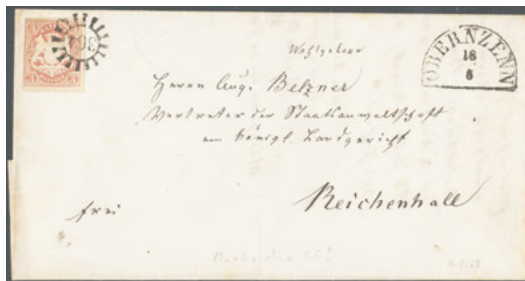 OBERNZENN
18
6
Wohlgeboren
Herrn Aug. Belzner
Vertreter der Staatsanwaltschaft
am königl. Landgericht
Reichenhall
frei